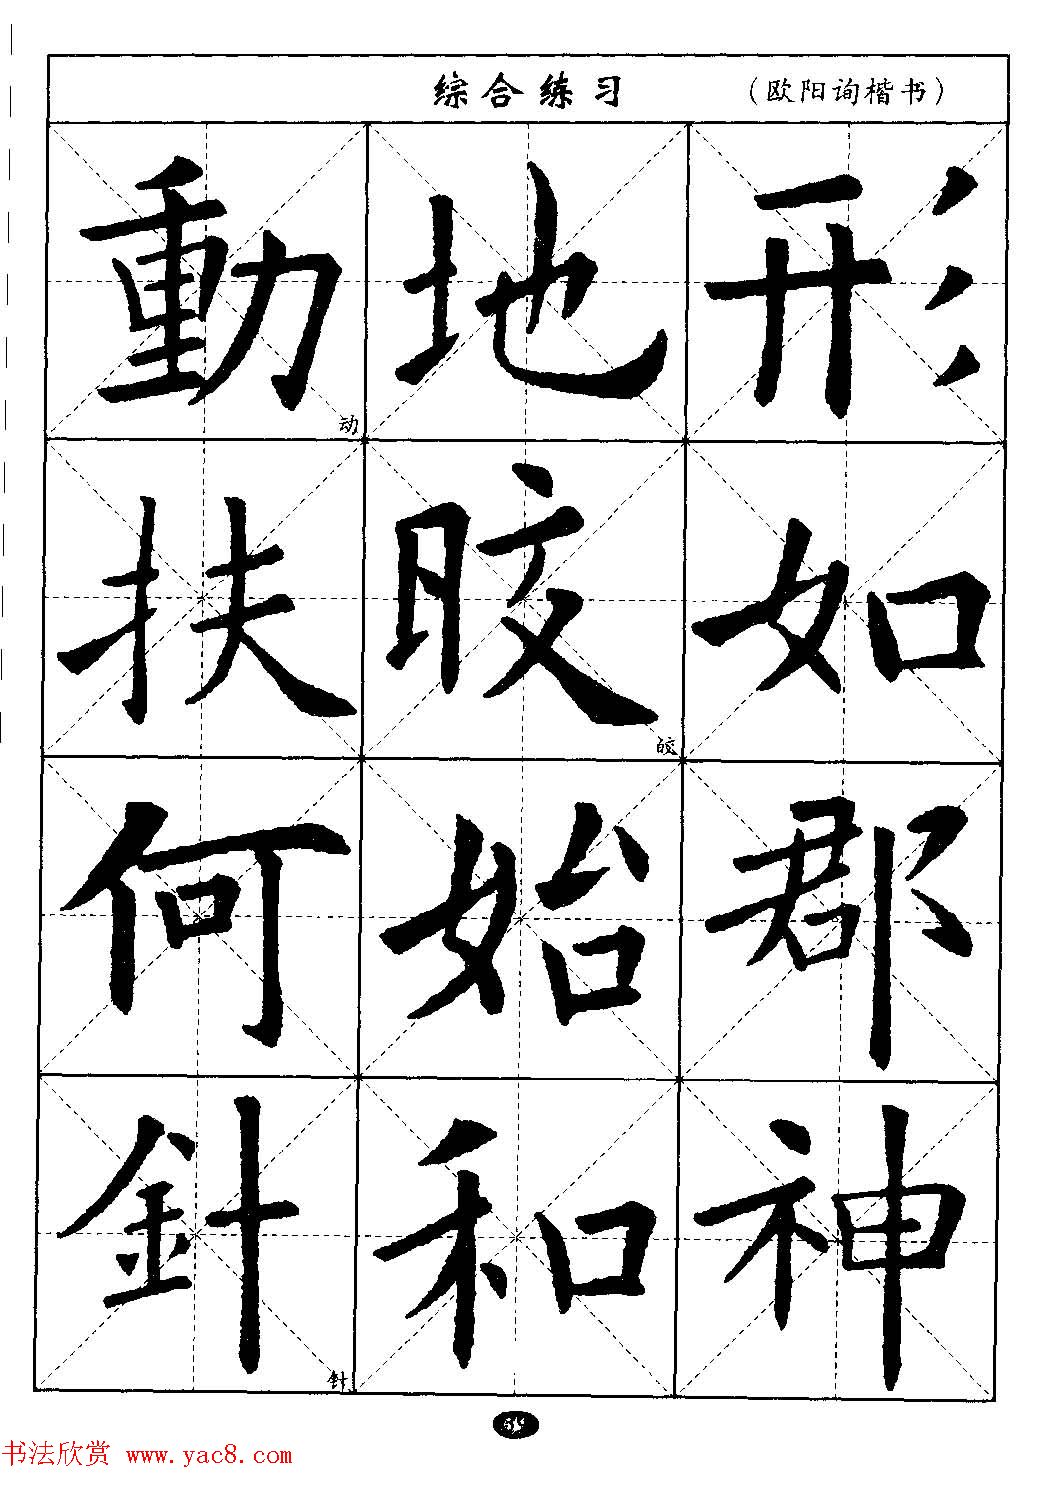 综合练习 （欧阳询楷书）
動 地 形
动
扶 晈 如
皎
何 始 郡
針 和 神
针
59
书法欣赏 www.yac8.com